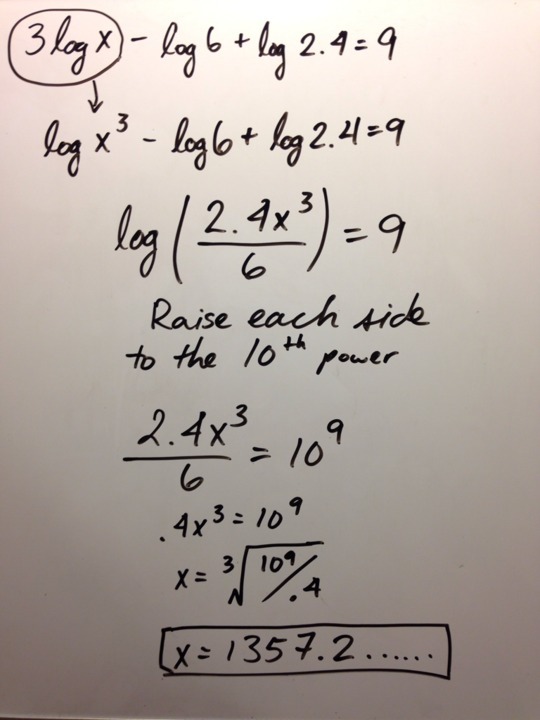 3 log x - log 6 + log 2.4 = 9
log x³ - log 6 + log 2.4 = 9
log (2.4x³/6) = 9
Raise each side
to the 10th power
2.4x³/6 = 10⁹
.4x³ = 10⁹
x = ³√(10⁹/.4)
x = 1357.2......